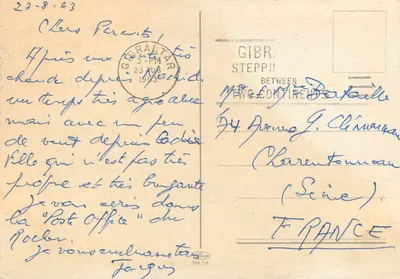 22-8-63
Chers Parents,
Après une très
chaude depuis
un temps très agréable
mais avec un peu
de vent depuis Cadix
Elle qui n'est pas très
propre et très bruyante
Je vous écris dans
la "Post Office" du
Rocher.
Je vous embrasse
GIBRALTAR
3 - PM
23 AUG
1963
GIBR
STEPPIN
BETWEEN
TWO CONTINENTS
74 Avenue G. Clémenceau
Charentonneau
(Seine)
FRANCE